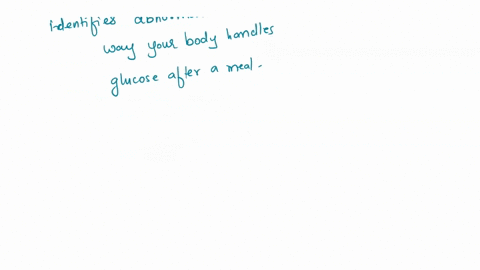 identifies
way your body handles
glucose after a meal.